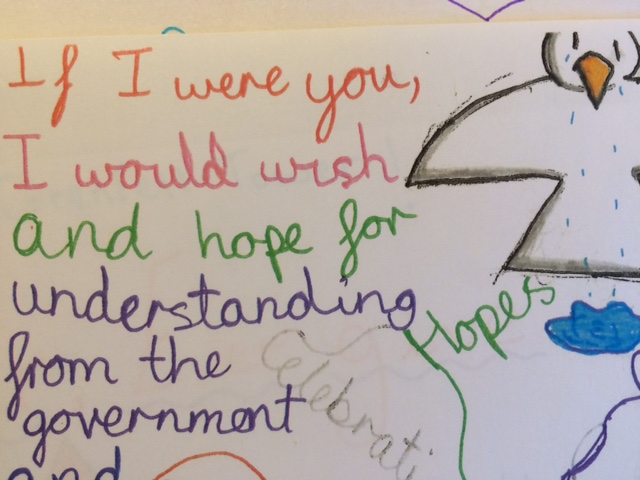 If I were you,
I would wish
and hope for
understanding
from the
government
and
Hopes
Celebrati